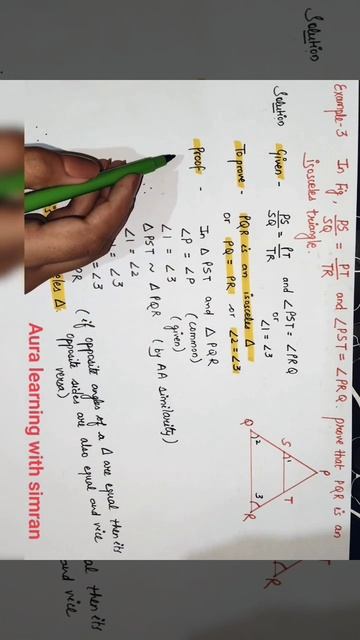 Solution
Example-3 In Fig, PS/SQ = PT/TR and ∠PST = ∠PRQ. prove that PQR is an
isosceles triangle.
Solution Given - PS/SQ = PT/TR and ∠PST = ∠PRQ
or
∠1 = ∠3
To prove - PQR is an isosceles Δ
or PQ = PR or ∠2 = ∠3
Proof - In Δ PST and Δ PQR
∠P = ∠P (common)
∠1 = ∠3 (given)
Δ PST ~ Δ PQR (by AA similarity)
∠1 = ∠2
= ∠3
= ∠3 (if opposite angles of a Δ are equal then its
opposite sides are also equal and vice
versa)
PR
Δ.
P
S
1
T
Q
2
3
R
R
al then its
and vice
Aura learning with simran